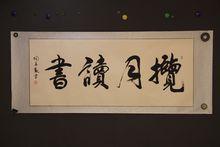 攬月讀書